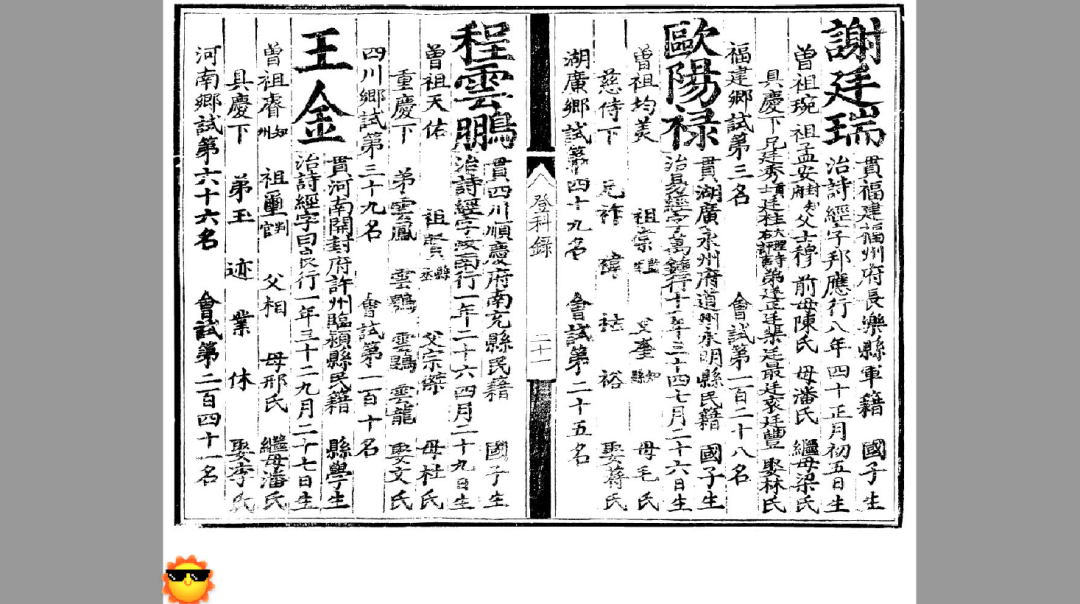 謝廷瑞
貫福建福州府長樂縣軍籍 國子生
治詩經字邦應行八年四十正月初五日生
曾祖琬 祖孟安 父士穆 前母陳氏 母潘氏 繼母梁氏
具慶下 兄廷秀 廷柱 弟 廷最廷袞廷豐 娶林氏
福建鄉試第三名 會試第一百二十八名
歐陽禄
貫湖廣永州府道州永明縣民籍 國子生
治易經字萬鍾行十一年三十四七月二十六日生
曾祖均美 祖崇 父奎 知縣 母毛氏
慈侍下 兄祚 禕 祜 裕 娶蔣氏
湖廣鄉試第四十九名 會試第二十五名
登科録
二十一
程雲鵬
貫四川順慶府南充縣民籍 國子生
治詩經字 南行一年二十六四月二十九日生
曾祖天佑 祖賢 縣丞 父宗 母杜氏
重慶下 弟雲鳳 雲鶚 雲鷂 雲龍 娶文氏
四川鄉試第三十九名 會試第一百十名
王金
貫河南開封府許州臨潁縣民籍 縣學生
治詩經字曰良行一年三十二九月二十七日生
曾祖睿 知州 祖璽 父相 母邢氏 繼母潘氏
具慶下 弟玉 迹 業 休 娶李氏
河南鄉試第六十六名 會試第二百四十一名